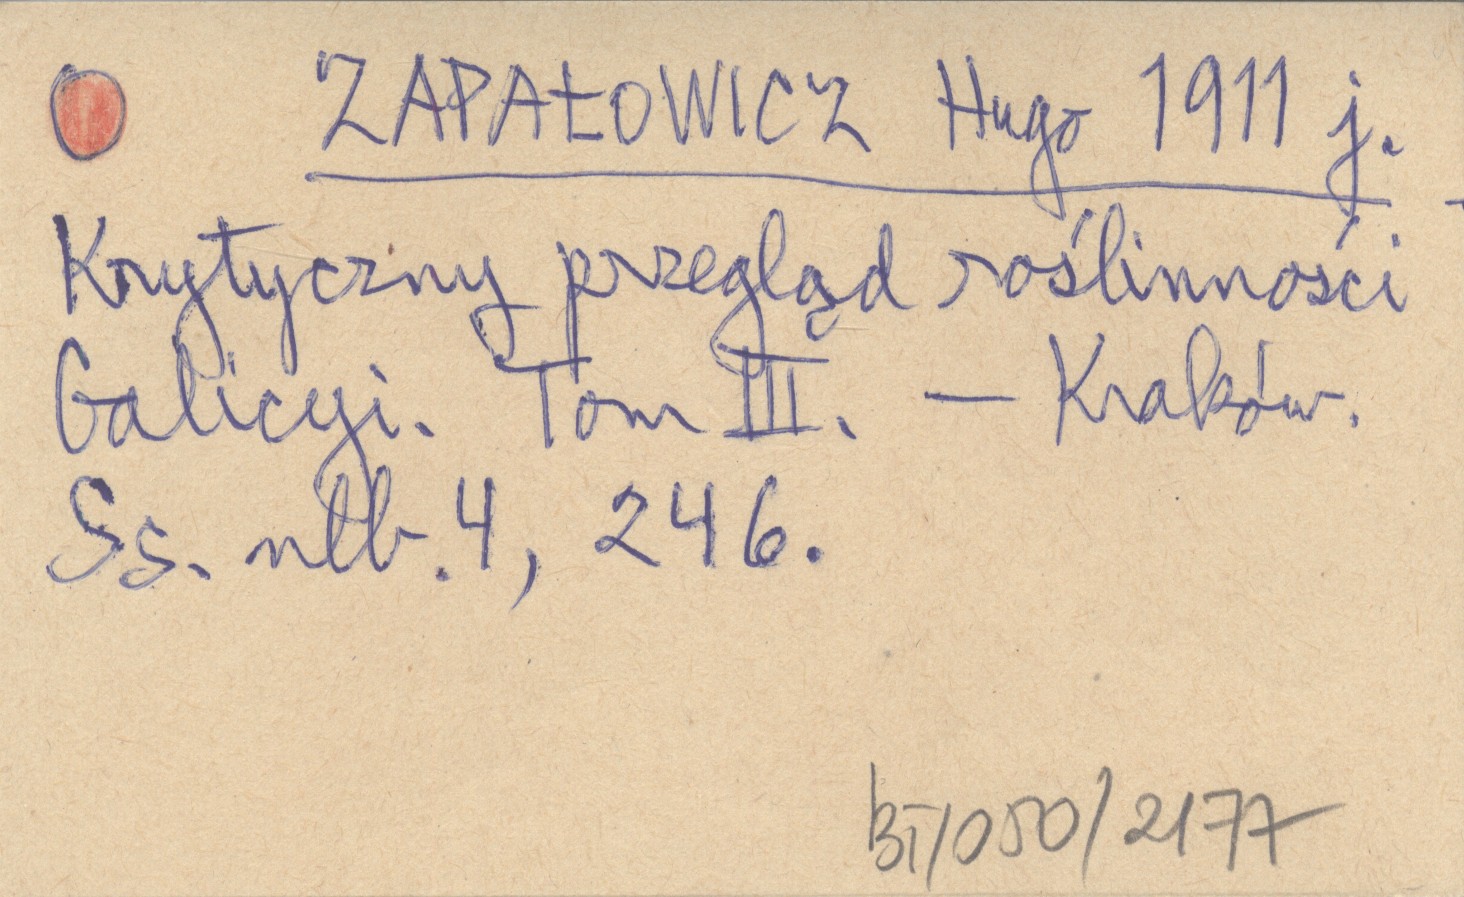 ZAPAŁOWICZ Hugo 1911 j.
Krytyczny przegląd roślinności
Galicyi. Tom III. — Kraków.
Ss. nlb. 4, 246.
BT/050/2177